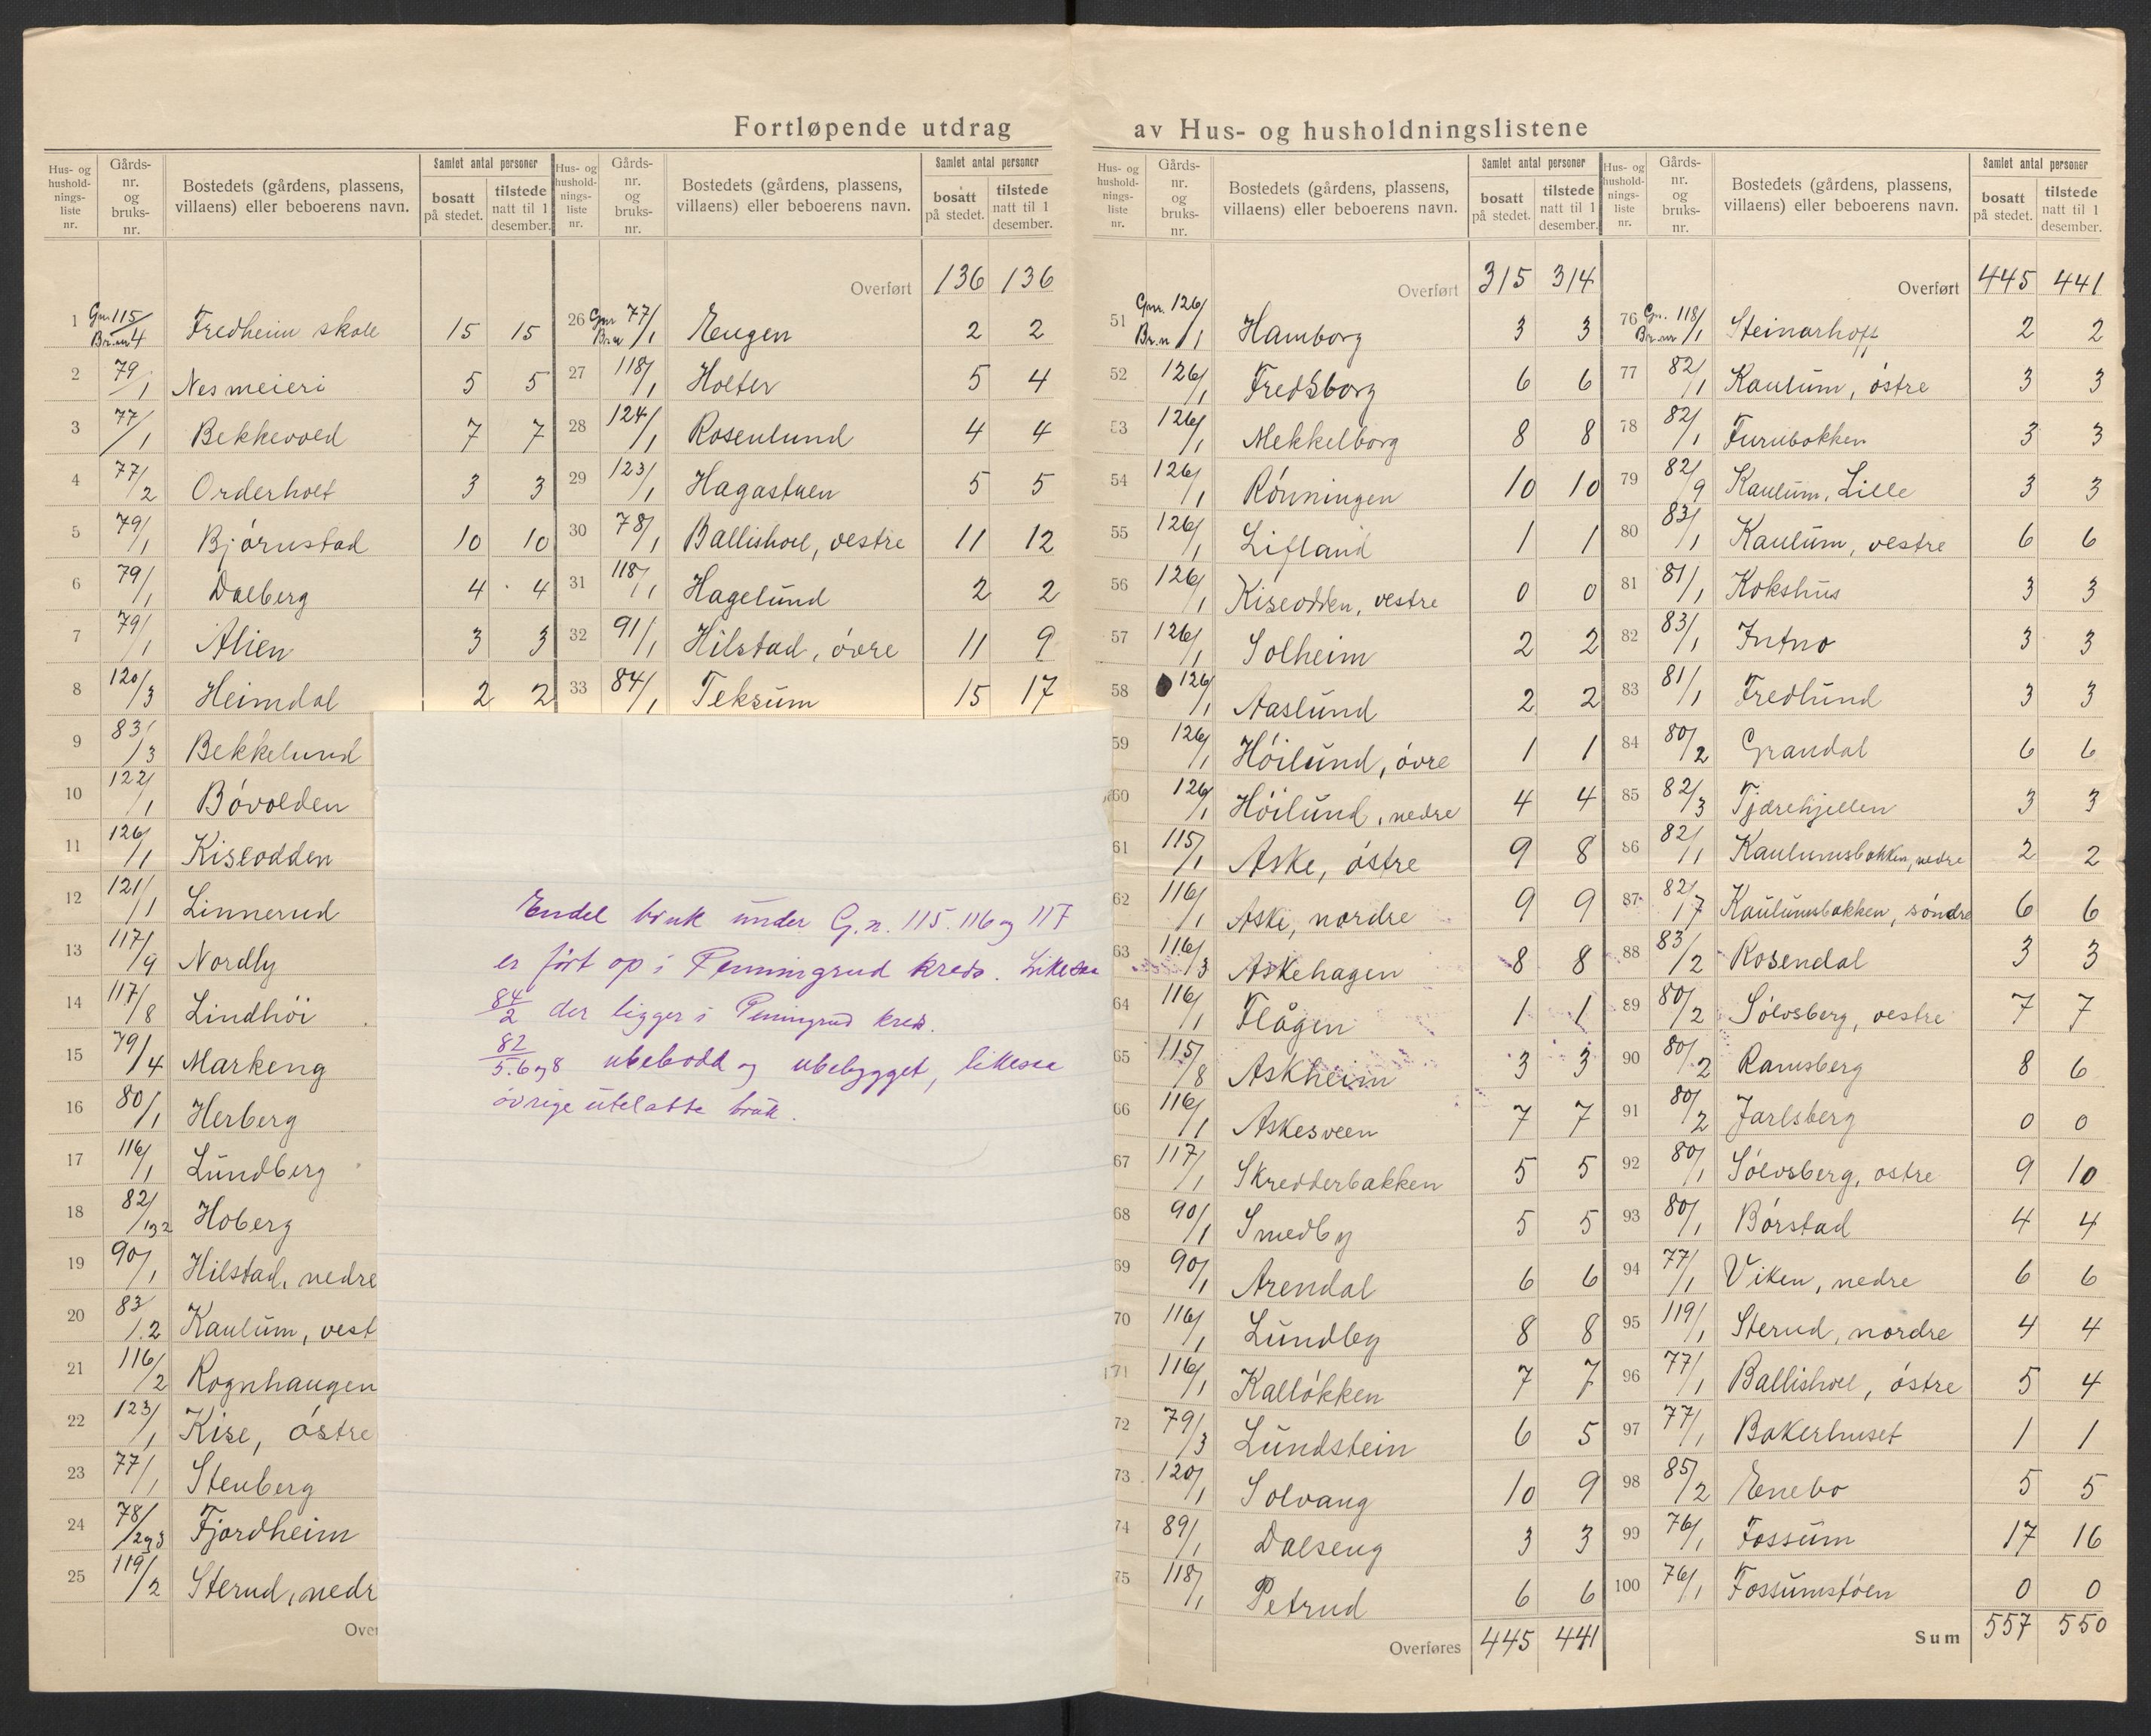 Fortløpende utdrag av Hus- og husholdningslistene
Hus- og hushold- nings- liste nr. | Gårds- nr. og bruks- nr. | Bostedets (gårdens, plassens, villaens) eller beboerens navn. | Samlet antal personer | bosatt på stedet. | tilstede natt til 1 desember.
1 Gnr 115/ Br.nr 4 Fredheim skole 15 15
2 79/1 Nes meieri 5 5
3 77/1 Bekkevold 7 7
4 77/2 Orderholt 3 3
5 79/1 Bjørnstad 10 10
6 79/1 Dalberg 4 4
7 79/1 Alien 3 3
8 120/3 Heimdal 2 2
9 83/3 Bekkelund
10 122/1 Bóvolden
11 126/1 Kiseodden
12 121/1 Linnerud
13 117/9 Nordly
14 117/8 Lindhöi
15 79/4 Markeng
16 80/1 Herberg
17 116/1 Lundberg
18 82/1 og 2 Hoberg
19 90/1 Hilstad, nedre
20 83/1.2 Kaulum, vest
21 116/2 Rognhaugen
22 123/1 Kise, óstre
23 77/1 Stenberg
24 78/2 og 3 Fjordheim
25 119/2 Sterud, nedr
Over
Hus- og hushold- nings- liste nr. | Gårds- nr. og bruks- nr. | Bostedets (gårdens, plassens, villaens) eller beboerens navn. | Samlet antal personer | bosatt på stedet. | tilstede natt til 1 desember.
Overført 136 136
26 Gnr 77/ Br.nr 1 Engen 2 2
27 118/1 Holter 5 4
28 124/1 Rosenlund 4 4
29 123/1 Hagastuen 5 5
30 78/1 Ballishoel, vestre 11 12
31 118/1 Hagelund 2 2
32 91/1 Hilstad, óvre 11 9
33 84/1 Teksum 15 17
Endel bruk under G.n. 115. 116 og 117
er fört op i Penningrud kreds. Likesaa
84/2 der ligger i Penningrud kreds.
82/5.6 og 8 ubebodd og ubebygget, likesaa
óvrige utelatte bruk.
Hus- og hushold- nings- liste nr. | Gårds- nr. og bruks- nr. | Bostedets (gårdens, plassens, villaens) eller beboerens navn. | Samlet antal personer | bosatt på stedet. | tilstede natt til 1 desember.
Overført 315 314
51 Gnr. 126/ Br.n 1 Hamborg 3 3
52 126/1 Fredsborg 6 6
53 126/1 Mekkelborg 8 8
54 126/1 Rónningen 10 10
55 126/1 Lifland 1 1
56 126/1 Kiseodden, vestre 0 0
57 126/1 Solheim 2 2
58 126/1 Aaslund 2 2
59 126/1 Höilund, óvre 1 1
60 126/1 Höilund, nedre 4 4
61 115/1 Aske, óstre 9 8
62 116/1 Aske, nordre 9 9
63 116/3 Askehagen 8 8
64 116/1 Flågen 1 1
65 115/8 Askheim 3 3
66 116/1 Askesveen 7 7
67 117/1 Skredderbakken 5 5
68 90/1 Smedby 5 5
69 90/1 Arendal 6 6
70 116/1 Lundby 8 8
71 116/1 Kallókken 7 7
72 79/3 Lundstein 6 5
73 120/1 Solvang 10 9
74 89/1 Dalseng 3 3
75 118/1 Petrud 6 6
Overføres 445 441
Hus- og hushold- nings- liste nr. | Gårds- nr. og bruks- nr. | Bostedets (gårdens, plassens, villaens) eller beboerens navn. | Samlet antal personer | bosatt på stedet. | tilstede natt til 1 desember.
Overført 445 441
76 Gn. 118/ Br.nr 1 Steinarhoff 2 2
77 82/1 Kaulum, óstre 3 3
78 82/1 Furubakken 3 3
79 82/9 Kaulum, Lille 3 3
80 83/1 Kaulum, vestre 6 6
81 81/1 Kokshus 3 3
82 83/1 Intno 3 3
83 81/1 Fredlund 3 3
84 80/2 Grandal 6 6
85 82/3 Tjærehjellen 3 3
86 82/11 Kaulumsbakken, nedre 2 2
87 82/17 Kaulumsbakken, sóndre 6 6
88 83/2 Rosendal 3 3
89 80/2 Sólvsberg, vestre 7 7
90 80/2 Ramsberg 8 6
91 80/2 Jarlsberg 0 0
92 80/1 Sólvsberg, ostre 9 10
93 80/1 Bórstad 4 4
94 77/1 Viken, nedre 6 6
95 119/1 Sterud, nordre 4 4
96 77/1 Ballishoel, óstre 5 4
97 77/1 Bakerhuset 1 1
98 85/2 Enebo 5 5
99 76/1 Fossum 17 16
100 76/1 Fossumstóen 0 0
Sum 557 550